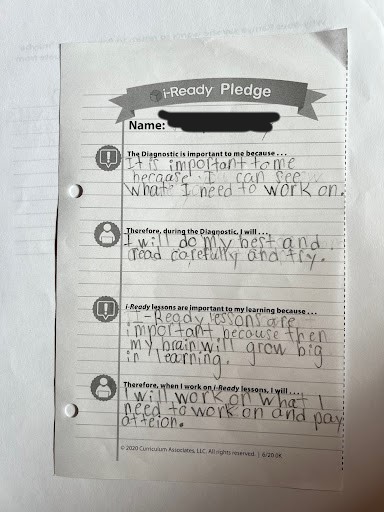 i-Ready Pledge
Name:
The Diagnostic is important to me because . . .
It is important to me
becaase I can see
what I need to work on.
Therefore, during the Diagnostic, I will . . .
I will do my best and
read carefully and try.
i-Ready lessons are important to my learning because . . .
I-Ready lessons are
important because then
my brain will grow big
in learning.
Therefore, when I work on i-Ready lessons, I will . . .
I will work on what I
need to work on and pay
atteion.
© 2020 Curriculum Associates, LLC. All rights reserved. | 6/20 0K